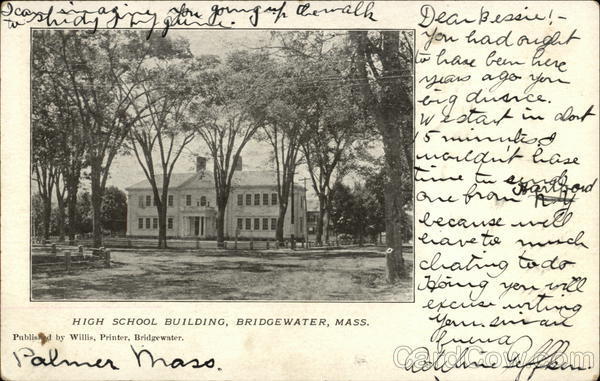 I can imagine you going up the walk
to study
Dear Bessie! -
You had ought
to have been here
years ago you
big dunce.
We start in abt
15 minutes. I
wouldn't have
time to send
one from Hartford
because will
have to much
chating to do
Hoping you will
excuse writing
Your sincere
friend
Adeline
HIGH SCHOOL BUILDING, BRIDGEWATER, MASS.
Published by Willis, Printer, Bridgewater.
Palmer Mass.
CardCow.com